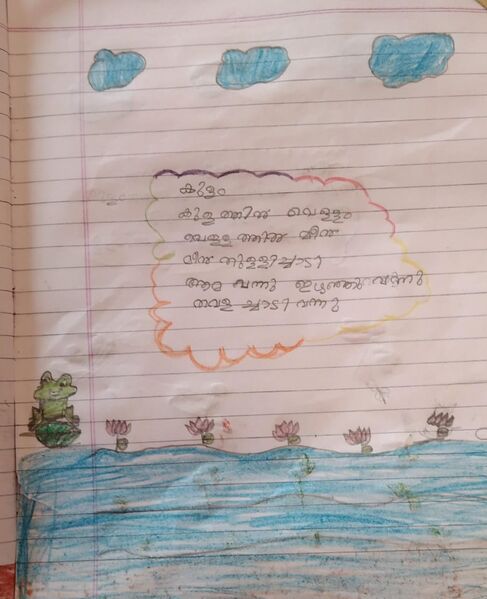 കുളം
കുള ത്തിൽ വെള്ളം
വെള്ള ത്തിൽ മീൻ
മീൻ തുള്ളിച്ചാടി
ആമ വന്നു ഇഴഞ്ഞു വന്നു
തവള ച്ചാടി വന്നു